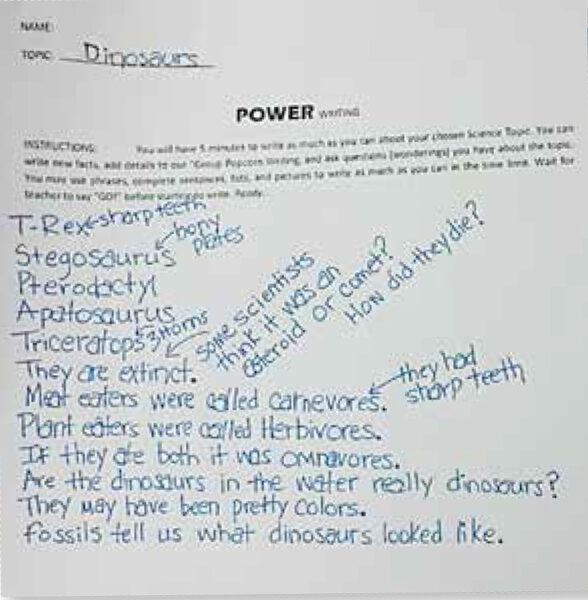 NAME:
TOPIC: Dinosaurs
POWER WRITING
INSTRUCTIONS: You will have 5 minutes to write as much as you can about your chosen Science Topic. You can
write new facts, add details to our "Group Popcorn Writing, and ask questions (wonderings) you have about the topic.
You may use phrases, complete sentences, lists, and pictures to write as much as you can in the time limit. Wait for
teacher to say "GO!" before starting to write. Ready
T-Rex sharp teeth
Stegosaurus bony plates
Pterodactyl
Apatosaurus
Triceratops 3 Horns
They are extinct.
some scientists
think it was an
asteroid or comet?
How did they die?
Meat eaters were called carnevores.
they had
sharp teeth
Plant eaters were called Herbivores.
If they ate both it was omnavores.
Are the dinosaurs in the water really dinosours?
They may have been pretty colors.
Fossils tell us what dinosaurs looked like.